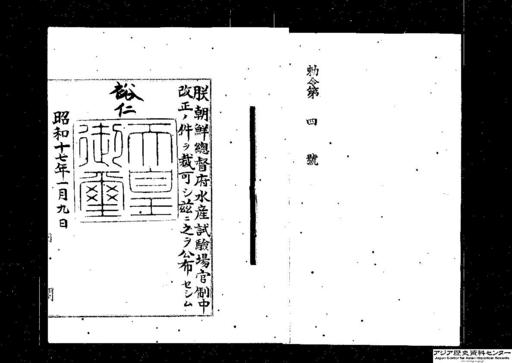 勅令第四號
朕朝鮮總督府水産試驗場官制中
改正ノ件ヲ裁可シ茲ニ之ヲ公布セシム
裕仁
天皇
御璽
昭和十七年一月九日
アジア歴史資料センター
Japan Center for Asian Historical Records